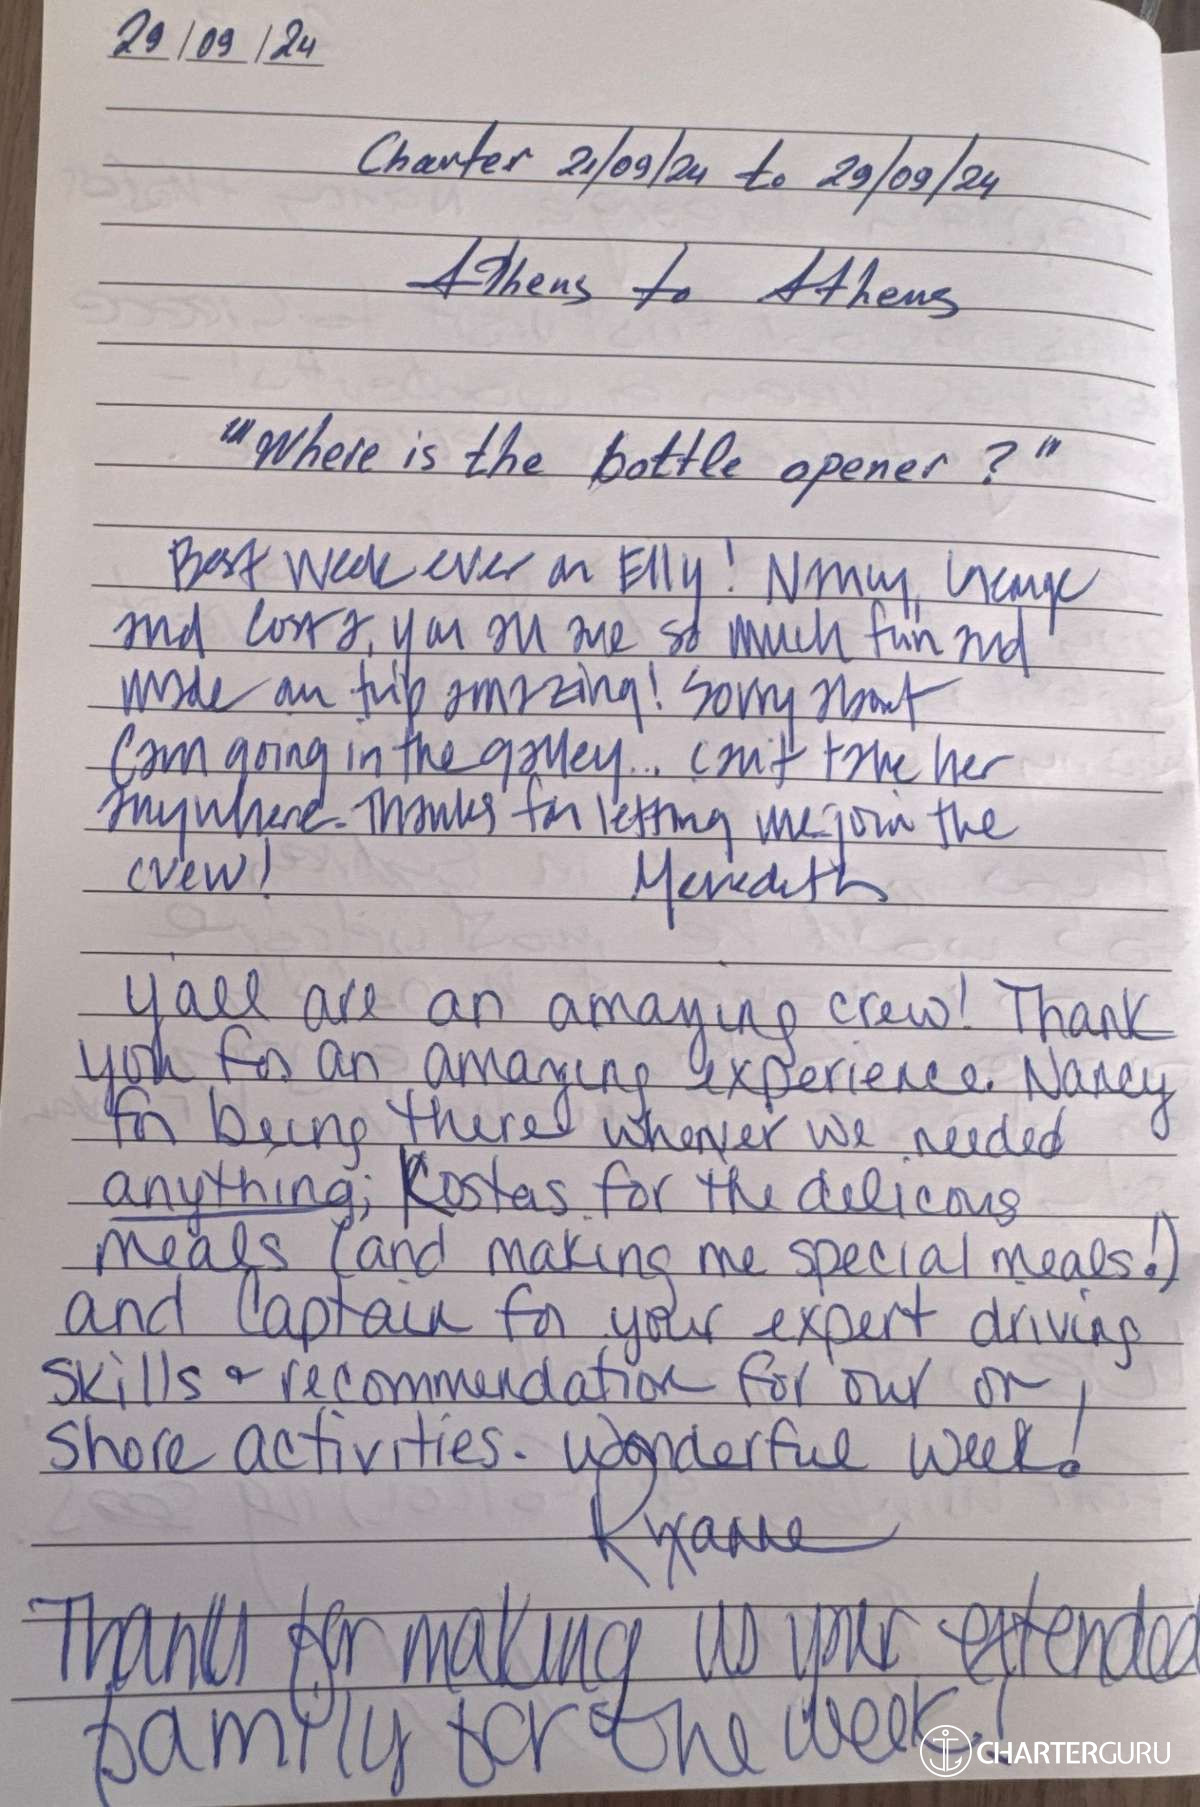 29/09/24
Charter 21/09/24 to 29/09/24
Athens to Athens
"Where is the bottle opener?"
Best week ever on Elly! Nancy, George
and Costa, you all are so much fun and
made our trip amazing! Sorry about
Cam going in the galley... can't take her
anywhere. Thanks for letting me join the
crew! Meredith
Y'all are an amazing crew! Thank
you for an amazing experience. Nancy
for being there whenever we needed
anything; Kostas for the delicous
meals (and making me special meals!)
and Captain for your expert driving
skills & recommendation for our on
shore activities. Wonderful week!
Thanks for making us your extended
family for the week!
CHARTERGURU